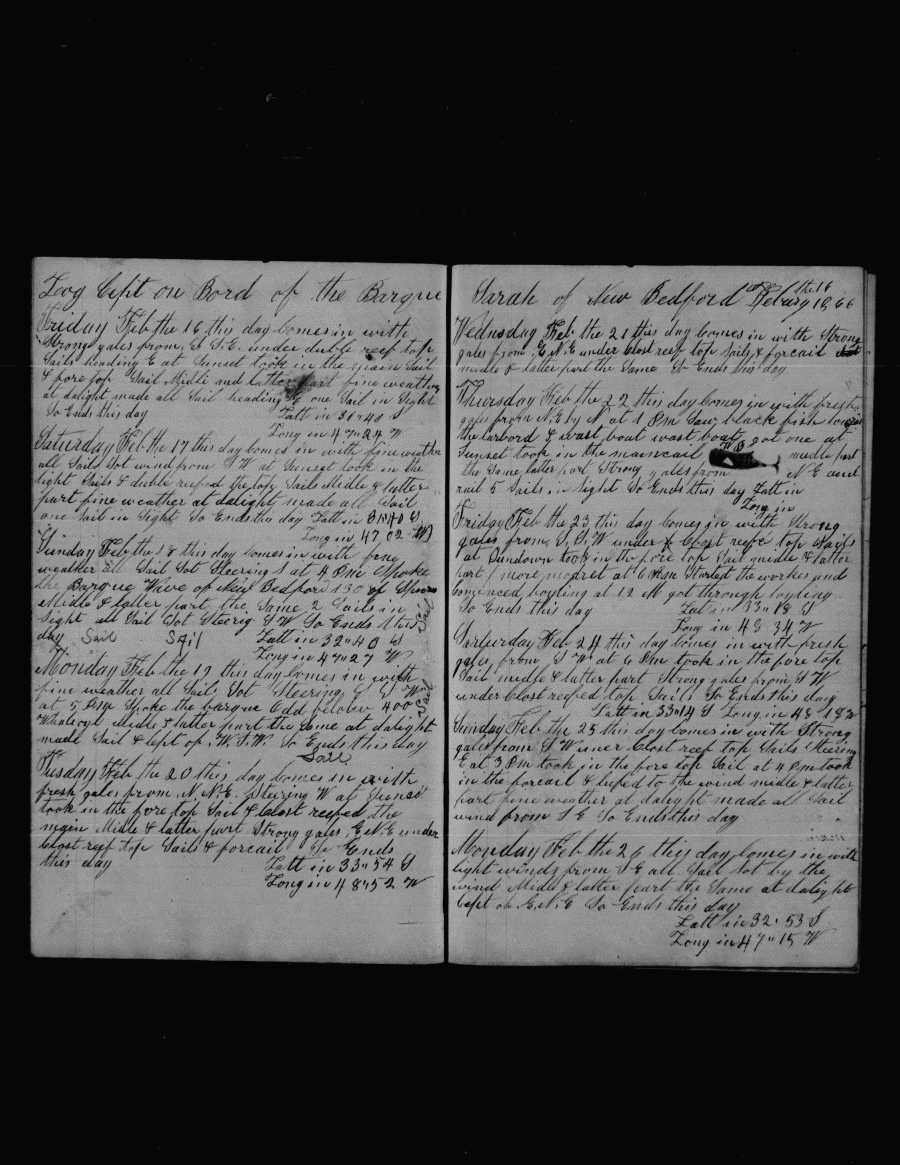 Loog Cept on Bord of the Barque
Friday Feb the 16 this day Comes in with
Strong gales from S. S. E. under duble reef top
Sails heading E at Sunset took in the main Sail
& fore top Sail Midle and latter part fine weather
at dalight made all Sail heading one Sail in Sight
So Ends this day Latt in 31"40 S
Long in 47"24 W
Saturday Feb the 17 this day Comes in with fine weather
all Sail Sot wind from S W at Sunset took in the
light Sails & duble reefed the top Sails Midle & latter
part fine weather at dalight made all Sail
one Sail in Sight So Ends this day Latt in 31"40 S
Long in 47 02 W
Sunday Feb the 18 this day Comes in with fine
weather all Sail Sot Steering S at 4 Pm Spoke
the Barque Wave of New Bedford 130 of Sperm
Midle & latter part the Same 2 Sails in
Sight all Sail Sot Steerig S W So Ends this
day Sail Sail Latt in 32"40 S
Long in 47"27 W
Sail
Monday Feb the 19 this day Comes in with
fine weather all Sail Sot Steering S S W
at 5 Pm Spoke the barque Odd fellow 400
Whaleoyl Midle & latter part the Same at dalight
made Sail & Cept of W. S. W. So Ends this day
Sail
Sail
Tusday Feb the 20 this day Comes in with
fresh gales from N. N. E. Steering W at Sunset
took in the fore top Sail & Close reefed the
main Midle & latter part Strong gales E N E under
Close reef top Sails & forcail So Ends
this day Latt in 33"54 S
Long in 48"52 W
Sarah of New Bedford Febuary the 16 66
Wednusday Feb the 21 this day Comes in with Strong
gales from E. N. E under Close reef top Sails & forcail
midle & latter part the Same So Ends this day
Thursday Feb the 22 this day Comes in with fresh
gales from N. E by N. at 1 Pm Saw black fish
the larbord & wast boat wast boat got one at
Sunset took in the maincail midle part
the Same latter part Strong gales from N E and
rail 5 Sails in Sight So Ends this day Latt in
Long in
Friday Feb the 23 this day Comes in with Strong
gales from S. S. W under Close reef top Sails
at Sundown took in the fore top Sail midle & latter
part more modret at 6 Am Started the workes and
Comenced boyling at 12 M got through boyling
So Ends this day Lat in 33"18 S
Long in 48 34 W
Sarterday Feb 24 this day Comes in with fresh
gales from S W at 6 Pm took in the fore top
Sail midle & latter part Strong gales from S W
under Close reefed top Sails So Ends this day
Latt in 33"14 S Long in 48"18
Sunday Feb the 25 this day Comes in with Strong
gales from S W uner Close reef top Sails Steering
E at 3 Pm took in the fore top Sail at 4 Pm took
in the forcail & lufed to the wind midle & latter
part fine weather at dalight made all Sail
wind from S E So Ends this day
Monday Feb the 26 this day Comes in with
light winds from S E all Sail Sot by the
wind Midle & latter part the Same at dalight
Cept of E. N. E So Ends this day
Latt in 32"53 S
Long in 47"15 W